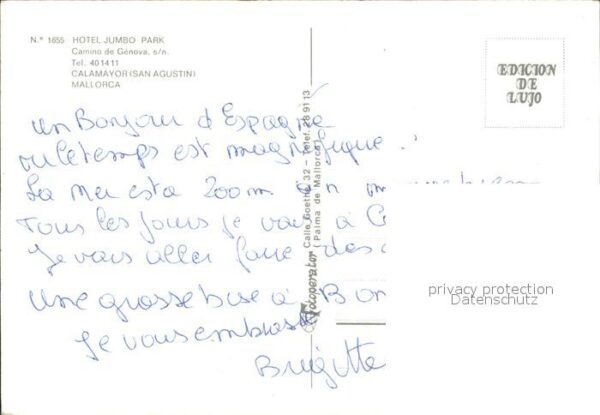 N.º 1655 HOTEL JUMBO PARK
Camino de Génova, s/n.
Tel. 401411
CALAMAYOR (SAN AGUSTIN)
MALLORCA
EDICION
DE
LUJO
un Bonjour d'Espagne
ou le temps est magnifique.
La mer est a 200 m on
Tous les jours je vais à
Je vais aller faire des
une grosse bise à Bon
Je vous embrasse
Brigitte
Fotoperator Calle Goethe, 32 – Telef. 28 91 13
(Palma de Mallorca)
privacy protection
Datenschutz